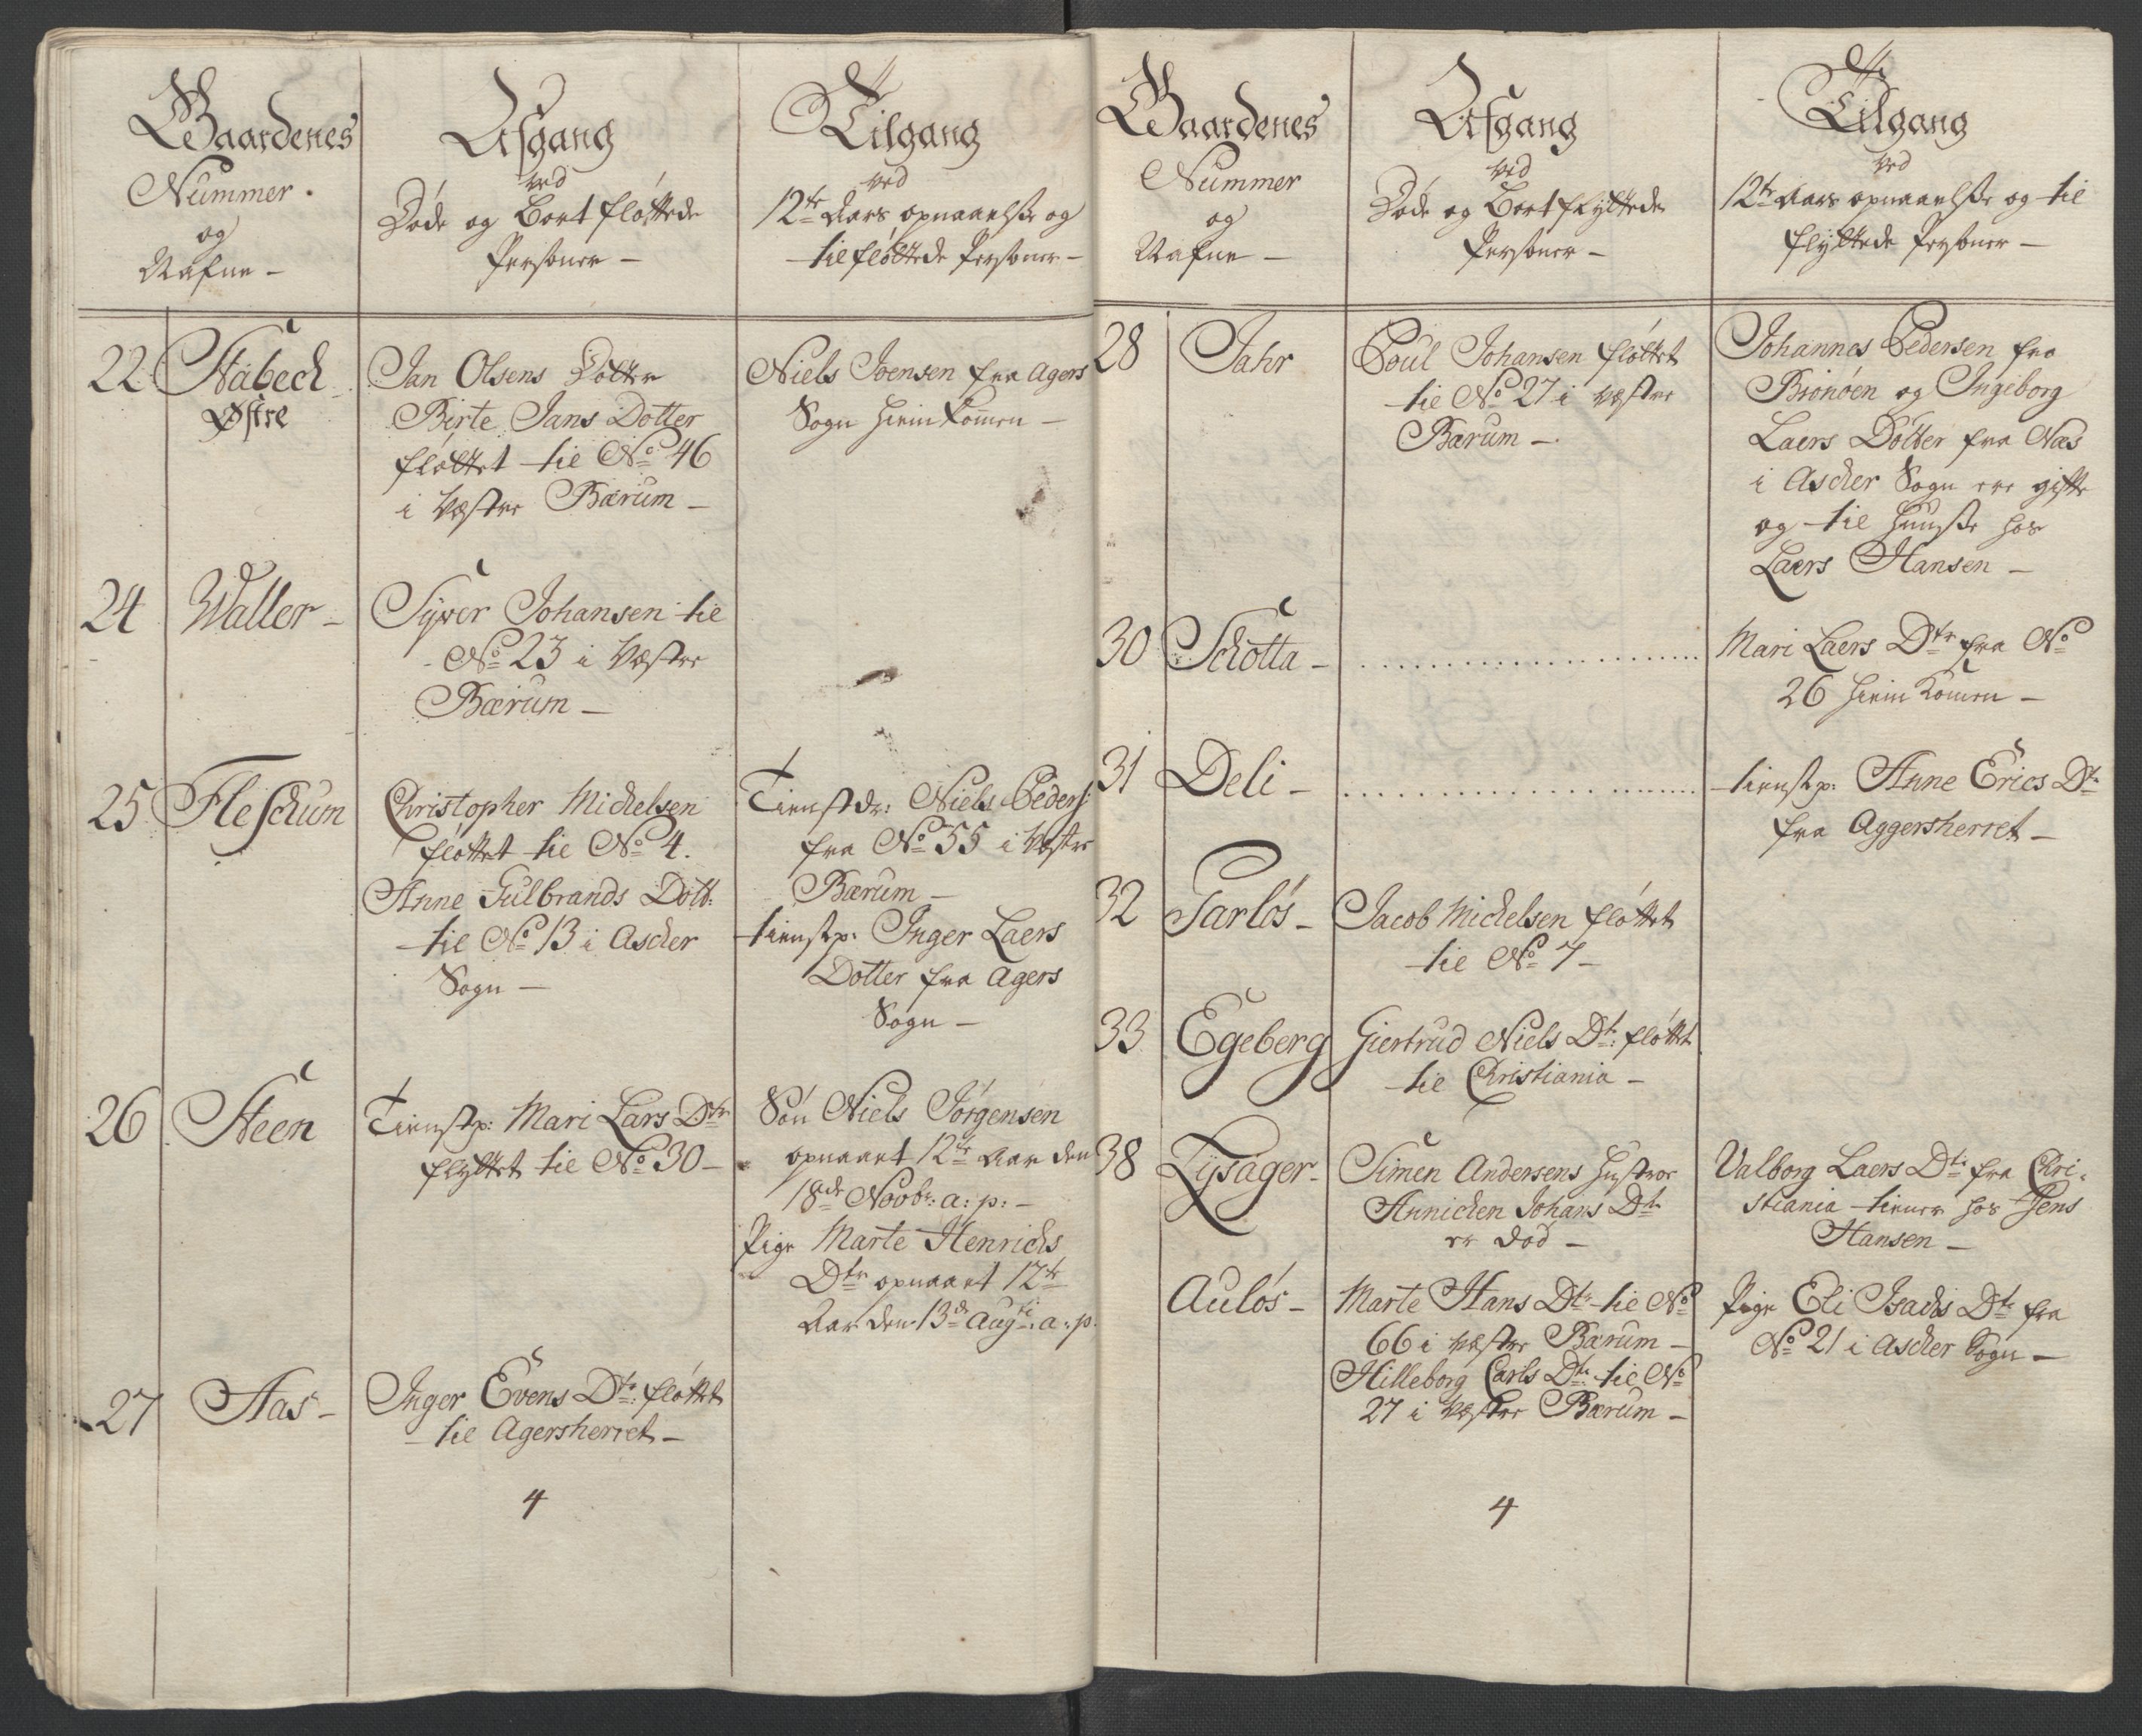 Gaardenes
Nummer.
og
Nafne -
Afgang
ved
Døde og Bortfløttede
Personer -
Tilgang
ved
12te Aars opnaaelsse og
tilfløttede Personer -
22 Stabech
Østre
Jan Olsens Dotter
Birte Jans Dotter
fløttet til No 46
i Vestre Bærum -
Niels Joensen fra Agers
Sogn hiemkommen -
24 Waller -
Syver Johansen til
No 23 i Vestre
Bærum -
25 Fleschum
Christopher Michelsen
fløttet til No 4.
Anne Gulbrands Dott:
til No 13 i Ascher
Sogn -
Tienstdr: Niels Peders:
fra No 55 i Vestre
Bærum -
tienstp: Inger Laers
Dotter fra Agers
Sogn -
26 Steen
Tienstp: Mari Lars Dtr
flyttet til No 30 -
Søn Niels Jørgensen
opnaaet 12te Aar den
18de Novbr: a: p: -
Pige Marte Henrichs
Dtr opnaaet 12te
Aar den 13de Augti: a: p.
27 Aas -
Inger Evens Dtr: fløttet
til Agersherret -
4
Gaardenes
Nummer
og
Nafne -
Afgang
ved
Døde og Bortflyttede
Personer -
Tilgang
ved
12te Aars opnaaelsse og til
flyttede Personer -
28 Jahr
Poul Johansen fløttet
til No 27 i Vestre
Bærum -
Johannes Pedersen fra
Brønøen og Ingeborg
Laers Dotter fra Næs
i Ascher Sogn ere gifte
og til huusse hos
Laers Hansen -
30 Schotta -
Mari Laers Dtr fra No
26 hiemkommen -
31 Deli -
tienstp: Anne Erics Dtr
fra Aggersherret -
32 Garløs -
Jacob Michelsen fløttet
til No 7 -
33 Egeberg
Giertrud Niels Dtr: fløttet
til Christiania -
38 Lysager -
Simen Andersens hustroe
Annichen Johans Dtr
er død -
Valborg Laers Dtr fra Chri-
stiania tiener hos Jens
Hansen -
Auløs -
Marte Hans Dtr til No
66 i vestre Bærum -
Hilleborg Carls Dtr: til No
27 i Vestre Bærum -
Pige Eli Isachs Dtr fra
No 21 i Ascher Sogn -
4